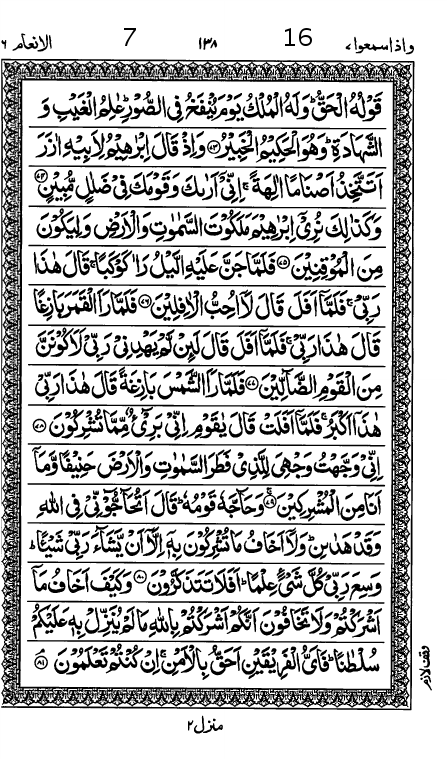 واذاسمعوا۷ 16 ۱۳۸ 7 الانعام ۶
قَوْلُهُ الْحَقُّ ؕ وَلَهُ الْمُلْكُ يَوْمَ يُنْفَخُ فِى الصُّوْرِ ؕ عٰلِمُ الْغَيْبِ وَ
الشَّهَادَةِ ؕ وَهُوَ الْحَكِيْمُ الْخَبِيْرُ ﴿۷۳﴾ وَاِذْ قَالَ اِبْرٰهِيْمُ لِاَبِيْهِ اٰزَرَ
اَتَتَّخِذُ اَصْنَامًا اٰلِهَةً ۚ اِنِّىْۤ اَرٰىكَ وَقَوْمَكَ فِىْ ضَلٰلٍ مُّبِيْنٍ ﴿۷۴﴾
وَكَذٰلِكَ نُرِىْۤ اِبْرٰهِيْمَ مَلَكُوْتَ السَّمٰوٰتِ وَالْاَرْضِ وَلِيَكُوْنَ
مِنَ الْمُوْقِنِيْنَ ﴿۷۵﴾ فَلَمَّا جَنَّ عَلَيْهِ الَّيْلُ رَاٰ كَوْكَبًا ۚ قَالَ هٰذَا
رَبِّىْ ۚ فَلَمَّاۤ اَفَلَ قَالَ لَاۤ اُحِبُّ الْاٰفِلِيْنَ ﴿۷۶﴾ فَلَمَّا رَاَ الْقَمَرَ بَازِغًا
قَالَ هٰذَا رَبِّىْ ۚ فَلَمَّاۤ اَفَلَ قَالَ لَئِنْ لَّمْ يَهْدِنِىْ رَبِّىْ لَاَكُوْنَنَّ
مِنَ الْقَوْمِ الضَّآلِّيْنَ ﴿۷۷﴾ فَلَمَّا رَاَ الشَّمْسَ بَازِغَةً قَالَ هٰذَا رَبِّىْ
هٰذَاۤ اَكْبَرُ ۚ فَلَمَّاۤ اَفَلَتْ قَالَ يٰقَوْمِ اِنِّىْ بَرِىْٓءٌ مِّمَّا تُشْرِكُوْنَ ﴿۷۸﴾
اِنِّىْ وَجَّهْتُ وَجْهِىَ لِلَّذِىْ فَطَرَ السَّمٰوٰتِ وَالْاَرْضَ حَنِيْفًا وَّمَاۤ
اَنَا مِنَ الْمُشْرِكِيْنَ ﴿۷۹﴾ ۚ وَحَآجَّهٗ قَوْمُهٗ ؕ قَالَ اَتُحَآجُّوْٓنِّىْ فِى اللّٰهِ
وَقَدْ هَدٰىنِ ؕ وَلَاۤ اَخَافُ مَا تُشْرِكُوْنَ بِهٖۤ اِلَّاۤ اَنْ يَّشَآءَ رَبِّىْ شَيْئًا ؕ
وَسِعَ رَبِّىْ كُلَّ شَىْءٍ عِلْمًا ؕ اَفَلَا تَتَذَكَّرُوْنَ ﴿۸۰﴾ وَكَيْفَ اَخَافُ مَاۤ
اَشْرَكْتُمْ وَلَا تَخَافُوْنَ اَنَّكُمْ اَشْرَكْتُمْ بِاللّٰهِ مَا لَمْ يُنَزِّلْ بِهٖ عَلَيْكُمْ
سُلْطٰنًا ؕ فَاَىُّ الْفَرِيْقَيْنِ اَحَقُّ بِالْاَمْنِ ۚ اِنْ كُنْتُمْ تَعْلَمُوْنَ ﴿۸۱﴾ ۘ
وقف لازم
منزل ۲